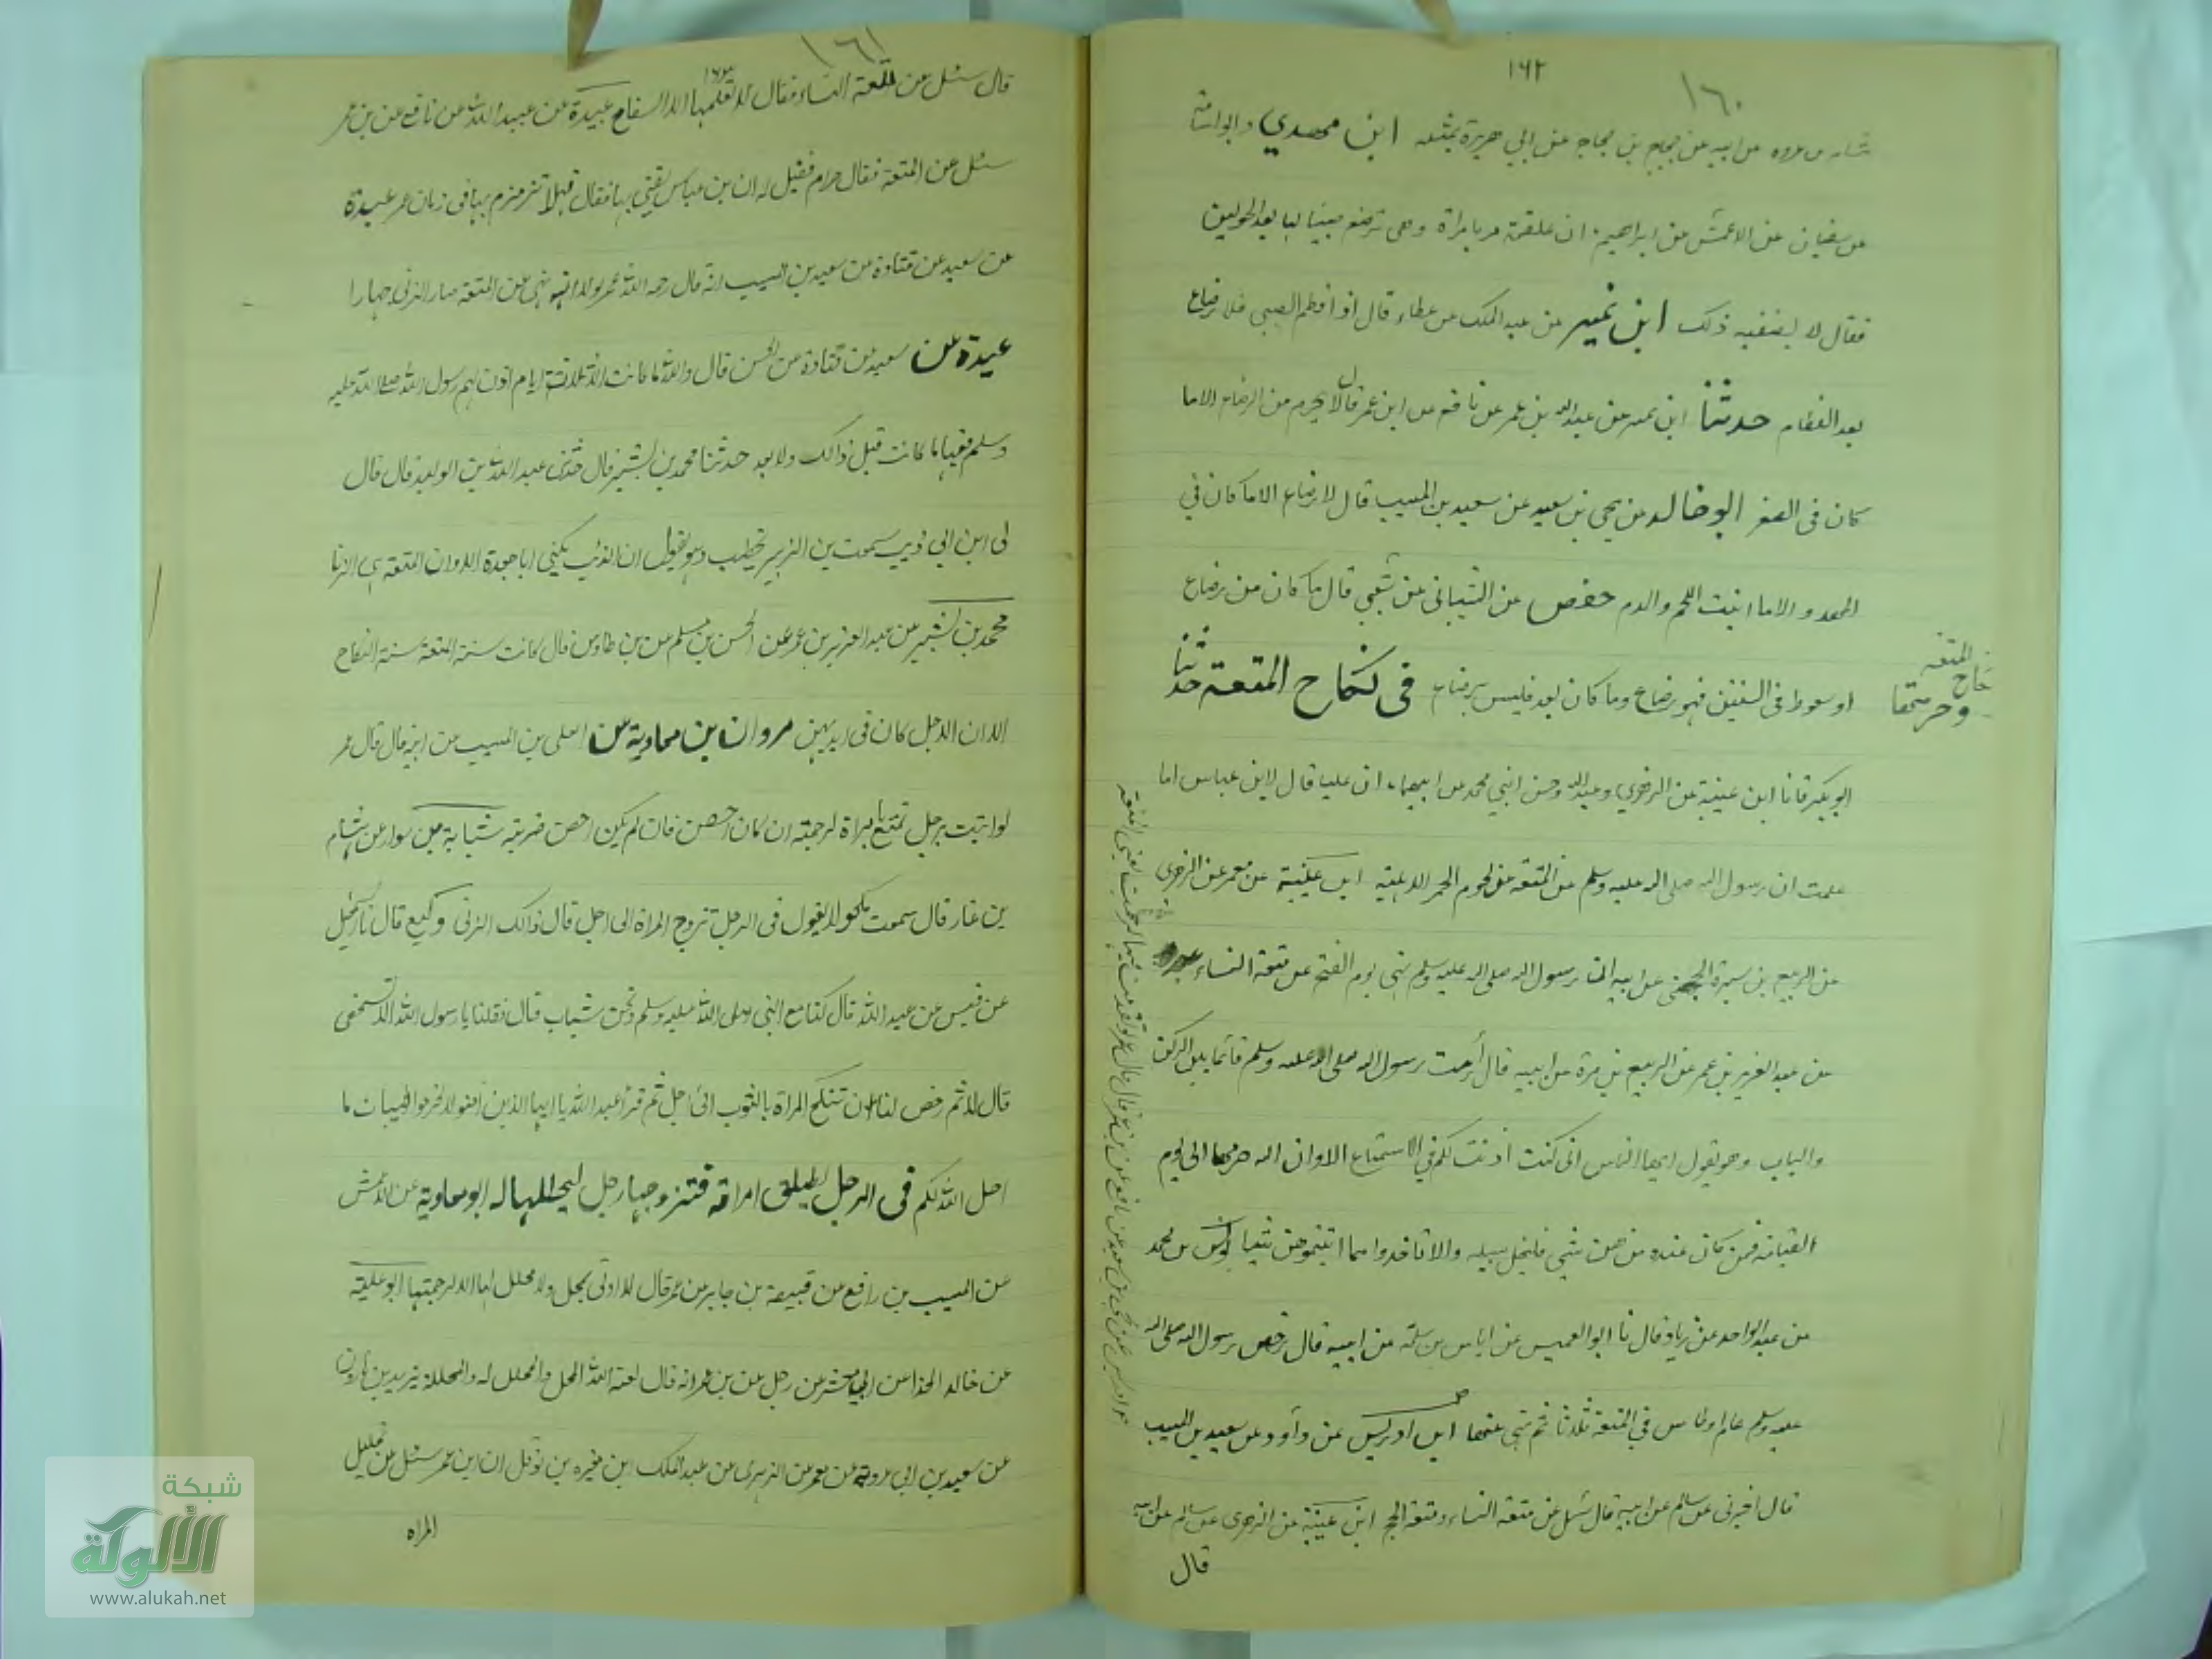 ١٦٢
١٦٠
عن ابيه عن حجاج بن حجاج عن ابي هريرة بمثله ابن مهدي وابو اسامة
عن سفيان عن الاعمش عن ابراهيم ان علقمة مر بامراة وهي ترضع صبيا لها بعد الحولين
فقال لا ترضعيه ذلك ابن نمير عن عبد الملك عن عطاء قال اذا فطم الصبي فلا رضاع
بعد الفطام حدثنا ابن نمير عن عبيد الله بن عمر عن نافع عن ابن عمر قال لا يحرم من الرضاع الا ما
كان فى الصغر ابو خالد عن يحيى بن سعيد عن سعيد بن المسيب قال لا رضاع الا ما كان في
المهد و الا ما انبت اللحم والدم حفص عن الشيباني عن شعبي قال ما كان من رضاع
او سعوط فى السنتين فهو رضاع وما كان بعد فليس برضاع فى نكاح المتعة حدثنا
المتعة
نكاح
وحرمتها
ابو بكر قانا ابن عيينة عن الزهري وعبد الله وحسن ابني محمد عن ابيهما ان عليا قال لابن عباس اما
علمت ان رسول الله صلى الله عليه وسلم عن المتعة عن لحوم الحمر الاهلية ابن عيينة عن معمر عن الزهري
عن الربيع بن سبرة الجهني عن ابيه ان رسول الله صلى الله عليه وسلم نهى يوم الفتح عن متعة النساء عبدة
عن عبد العزيز بن عمر عن الربيع بن سبرة عن ابيه قال رأيت رسول الله صلى الله عليه وسلم قائما بين الركن
والباب وهو يقول ايها الناس انى كنت أذنت لكم في الاستمتاع الا وان الله حرمها الى يوم
القيامة فمن كان عنده منهن شي فليخل سبيله ولا تاخذوا مما اتيتموهن شيئا يونس بن محمد
عن عبد الواحد عن زياد قال نا ابو العميس عن اياس بن سلمة عن ابيه قال رخص رسول الله صلى الله
عليه وسلم عام اوطاس في المتعة ثلاثا ثم نهى عنها ابن ادريس عن داود عن سعيد بن المسيب
قال اخبرني عن سالم عن ابيه قال سئل عن متعة النساء ومتعة الحج ابن عيينة عن الزهري عن سالم عن ابيه
قال
١٦١
١٦٣
قال سئل عن المتعة النساء فقال لا تعلمها الا السفاح عبيدة عن عبيد الله عن نافع عن بن عمر
سئل عن المتعة فقال حرام فقيل له ان بن عباس يفتي بها فقال فهلا تزمزم بها فى زمان عمر عبدة
عن سعيد عن قتادة عن سعيد بن المسيب انه قال رحم الله عمر لولا انه نهى عن المتعة صار الزنى جهارا
عبدة عن سعيد عن قتادة عن الحسن قال والله ما كانت الا ثلاثة ايام اذن لهم رسول الله صلى الله عليه
وسلم فيها ما كانت قبل ذالك ولا بعد حدثنا محمد بن بشير قال حدثنى عبد الله بن الوليد قال قال
لى ابن ابي ذيب سمعت بن الزبير يخطب وهو يقول ان الذئب يكنى ابا جعدة الا وان المتعة هي الزنا
محمد بن بشير عن عبد العزيز بن عمر عن الحسن بن مسلم عن بن طاوس قال كانت سنة المتعة سنة النكاح
الا ان الاجل كان فى ايديهن مروان بن معاوية عن اعلى بن المسيب عن ابيه قال قال عمر
لو اتيت برجل تمتع بامراة لرجمته ان كان احصن فان لم يكن احصن ضربته شبابة عن سوار عن هشام
بن غار قال سمعت مكحولا يقول فى الرجل تزوج المراة الى اجل قال ذالك الزنى وكيع قال نا اسمعيل
عن قيس عن عبد الله قال كنا مع النبي صلى الله عليه وسلم ونحن شباب قال فقلنا يا رسول الله الا نستخصى
قال لا ثم رخص لنا ان تنكح المراة بالثوب الى اجل ثم قرأ عبد الله يا ايها الذين امنوا لا تحرموا طيبات ما
احل الله لكم فى الرجل يطلق امراته فتزوجها رجل ليحللها له ابو معاوية عن الاعمش
عن المسيب بن رافع عن قبيصة بن جابر عن عمر قال لا اوتى بمحل ولا محلل لها الا رجمتهما ابو علية
عن خالد الحذا عن ابي معشر عن رجل عن بن عمر انه قال لعنة الله المحل والمحلل له والمحللة يزيد بن هارون
عن سعيد بن ابى عروة عن معمر عن الزهرى عن عبد الملك ابن مغيرة بن نوفل ان ابن عمر سئل عن تحليل
المراه
شبكة
الألوكة
www.alukah.net